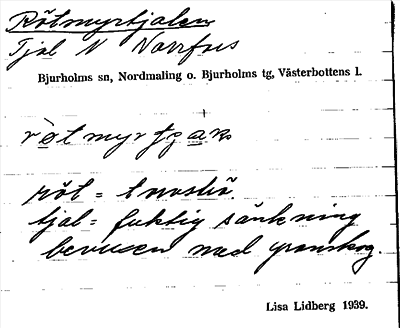 Rötmyrtjalen
Tjal N Norrfors
Bjurholms sn, Nordmaling o. Bjurholms tg, Västerbottens l.
röt =
tjal = fuktig sänkning
bevuxen med granskog.
Lisa Lidberg 1939.